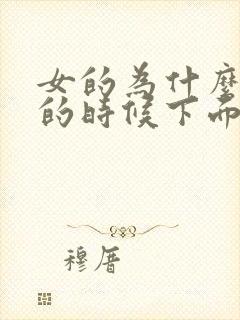 女的為什麼
的時候下而
穆厝